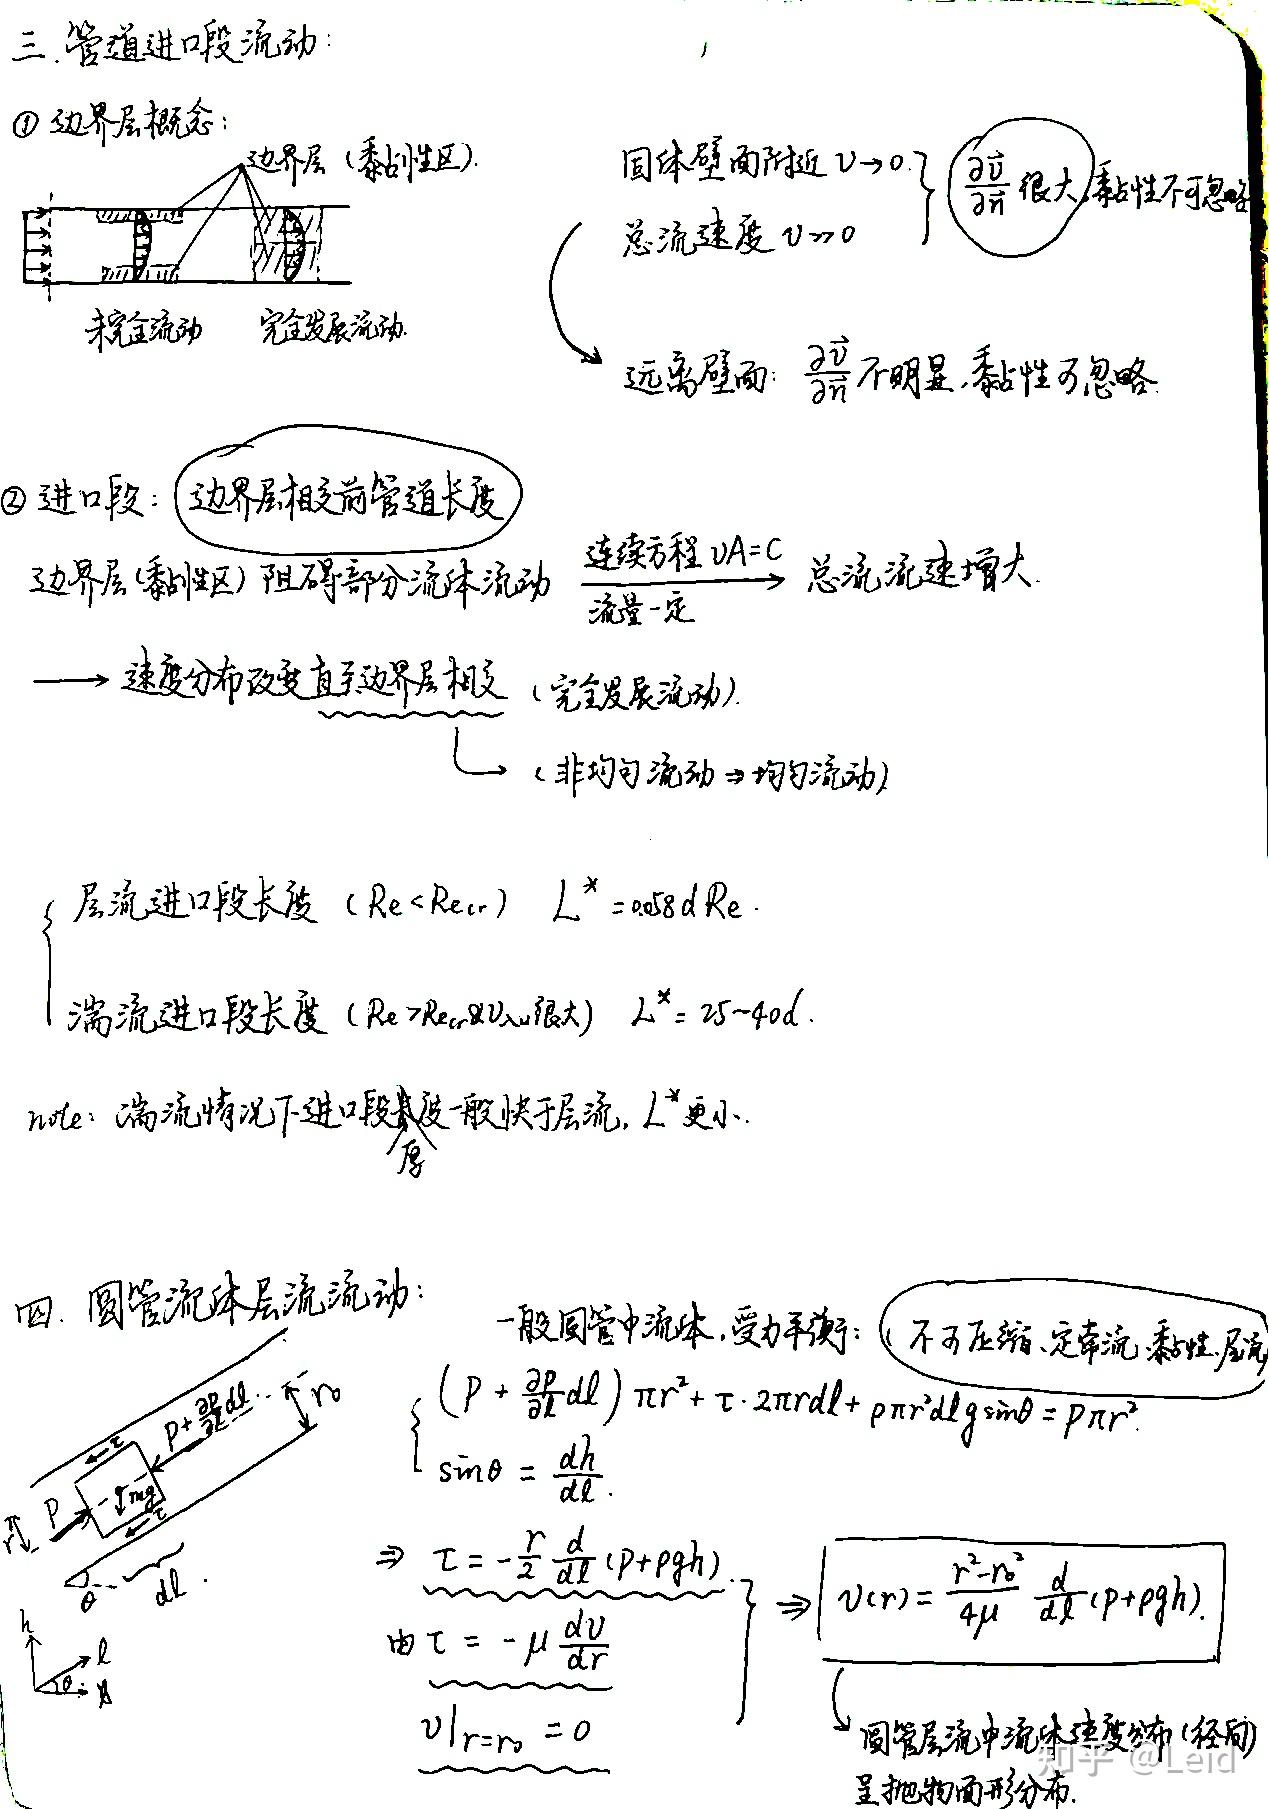 三. 管道进口段流动:
① 边界层概念:
边界层 (黏性区).
未完全流动 完全发展流动.
固体壁面附近 υ→0.
总流速度 υ≫0
∂v⃗/∂n⃗ 很大, 黏性不可忽略
远离壁面: ∂v⃗/∂n⃗ 不明显, 黏性可忽略.
② 进口段: 边界层相交前管道长度
边界层(黏性区) 阻碍部分流体流动 连续方程 υA=C 流量一定 → 总流流速增大.
→ 速度分布改变直至边界层相交 (完全发展流动).
(非均匀流动 ⇒ 均匀流动)
层流进口段长度 (Re<Recr) L* = 0.058 d Re.
湍流进口段长度 (Re>Recr 很大) L* = 25~40d.
note: 湍流情况下进口段厚度一般快于层流, L* 更小.
四. 圆管流体层流流动:
一般圆管中流体, 受力平衡: (不可压缩、定常流、黏性、层流
(P + ∂P/∂l dl) πr² + τ·2πrdl + ρπr²dlg sinθ = Pπr².
sinθ = dh/dl.
⇒ τ = -r/2 d/dl (P+ρgh).
由 τ = -μ dυ/dr
υ|r=r₀ = 0
⇒ υ(r) = (r²-r₀²)/4μ d/dl (P+ρgh).
圆管层流中流体速度分布(径向)
呈抛物面形分布.
P+∂P/∂l dl
r₀
τ
P
mg
τ
r
θ
dl.
h
l
θ
知乎 @Leid